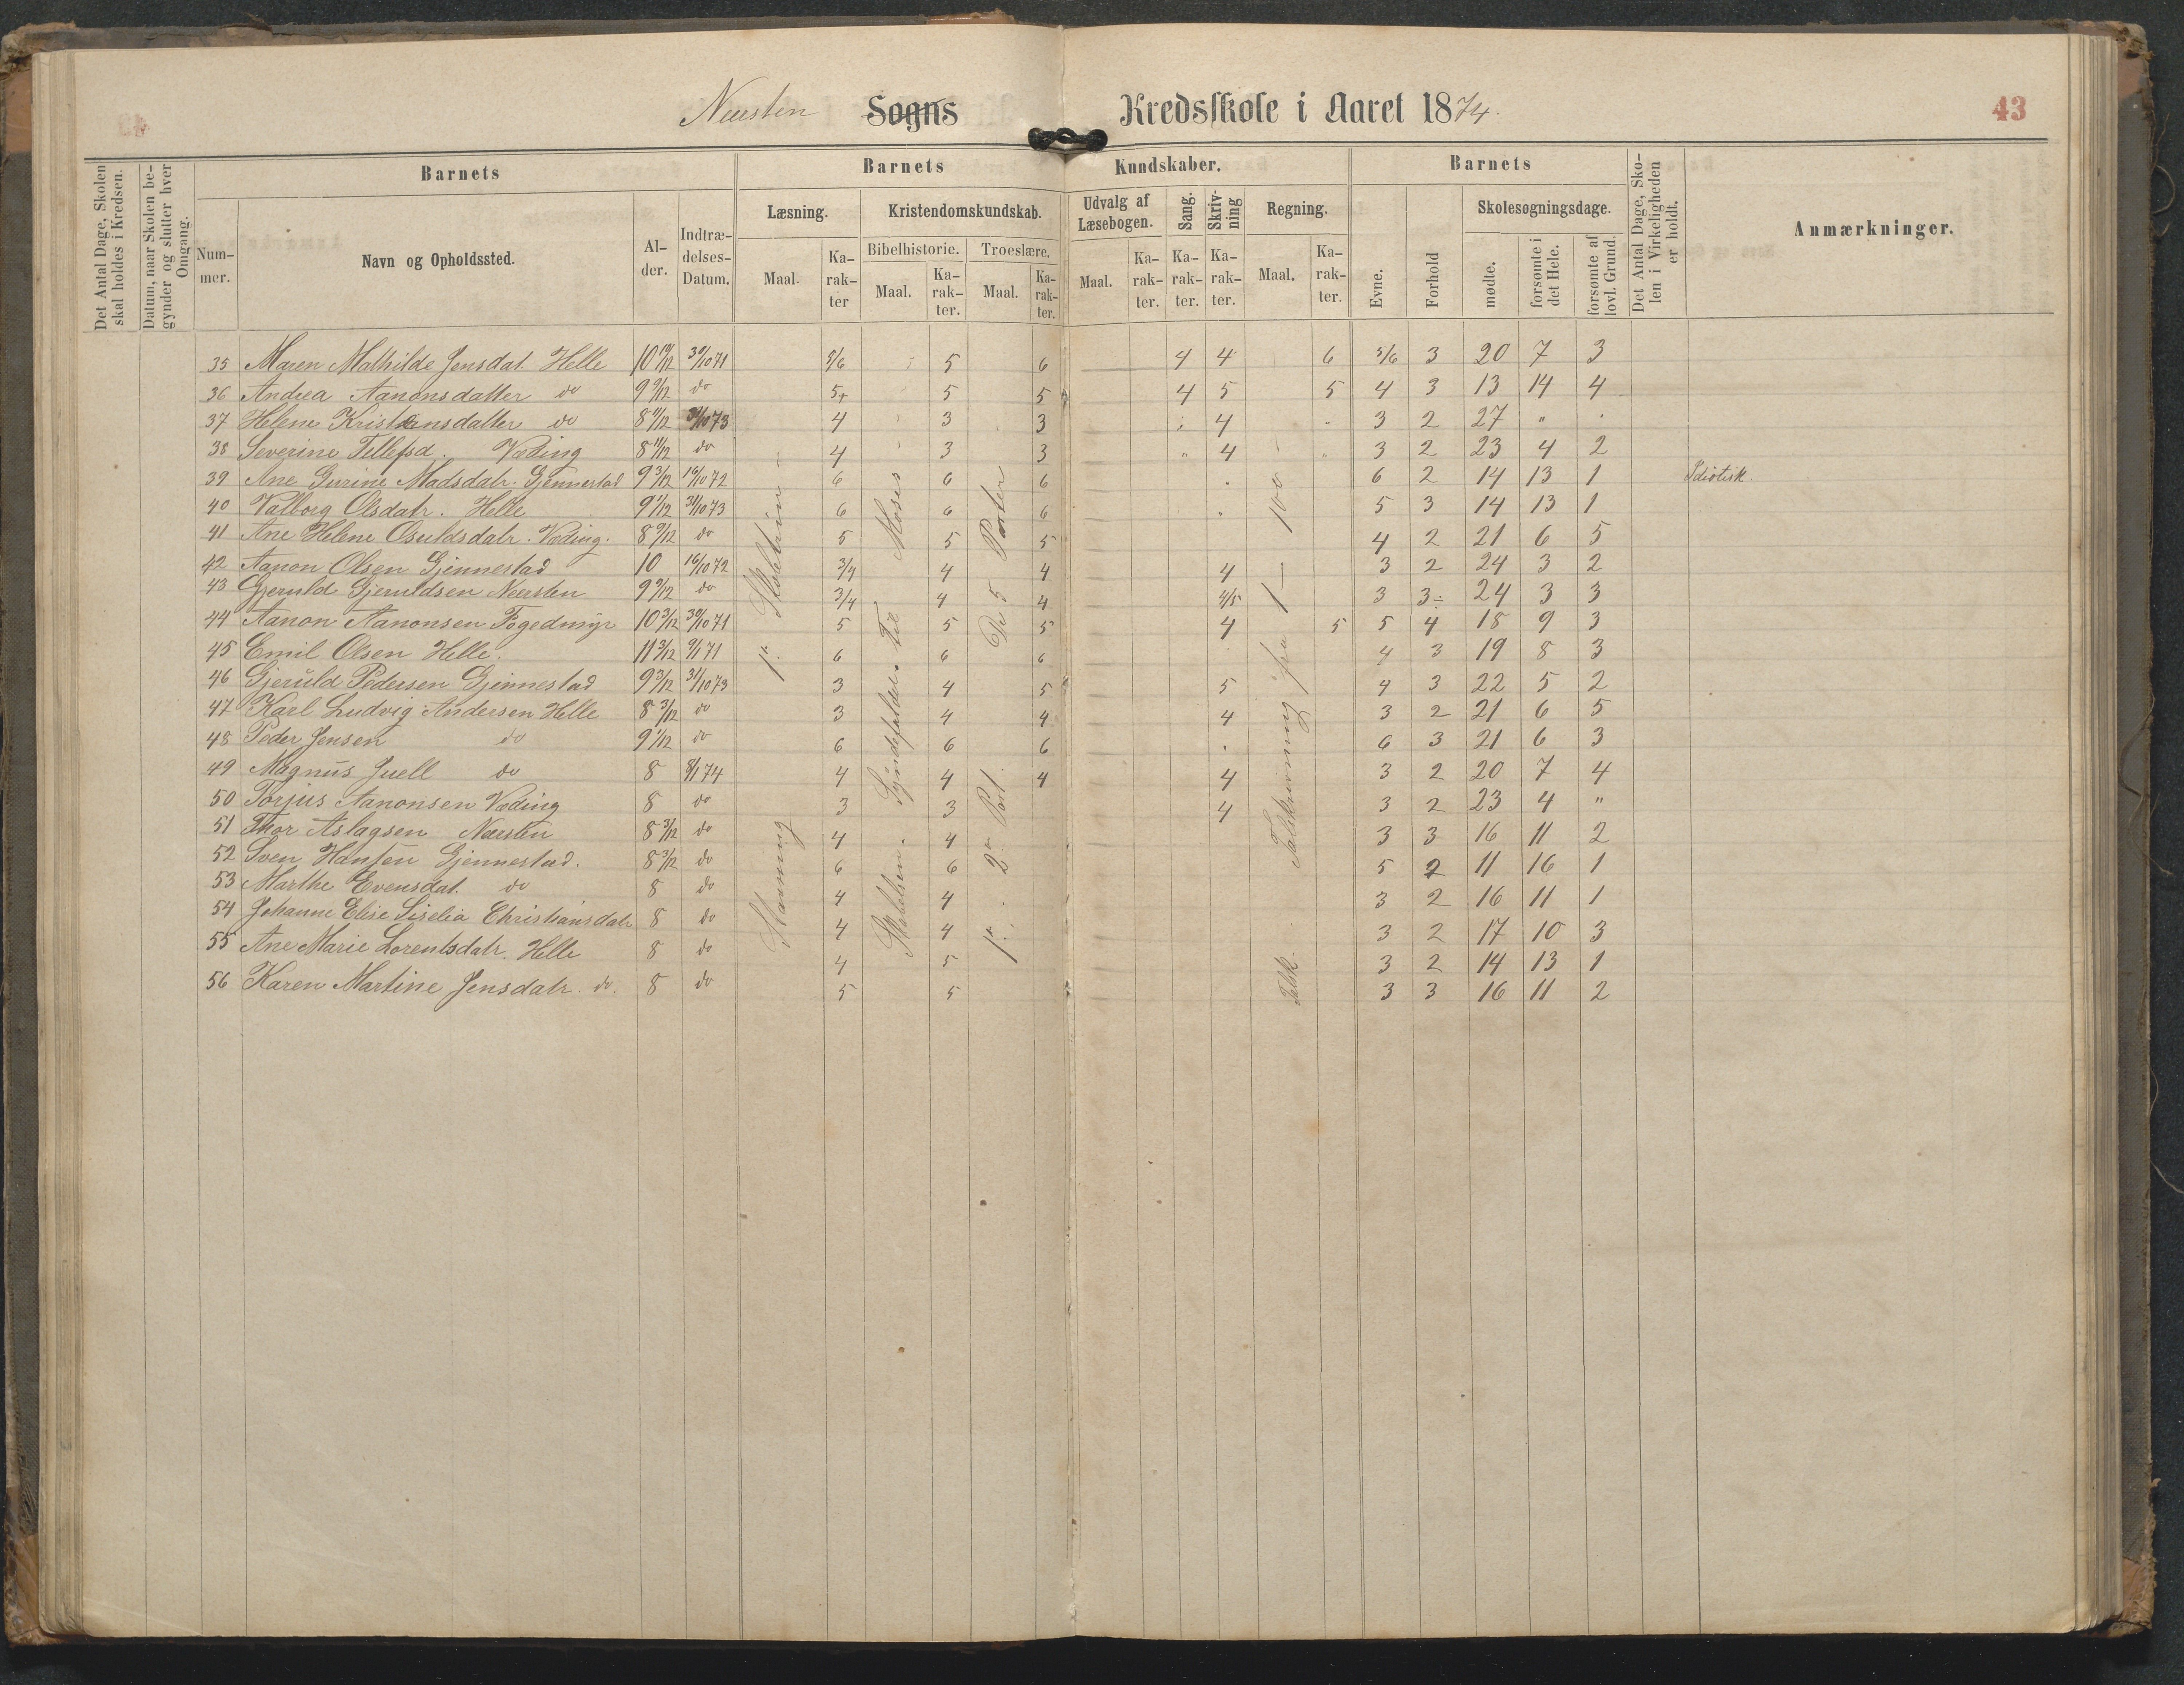 Næsten Sogns Kredsskole i Aaret 1874.
43
Det Antal Dage, Skolen skal holdes i Kredsen.
Datum, naar Skolen begynder og slutter hver Omgang.
Barnets
Nummer.
Navn og Opholdssted.
Alder.
Indtrædelses-Datum.
Barnets Kundskaber.
Læsning.
Maal.
Karakter
Kristendomskundskab.
Bibelhistorie.
Maal.
Karakter.
Troeslære.
Maal.
Karakter.
Udvalg af Læsebogen.
Maal.
Karakter.
Sang.
Karakter.
Skrivning
Karakter.
Regning.
Maal.
Karakter.
Barnets
Evne.
Forhold
Skolesøgningsdage.
mødte.
forsømte i det Hele.
forsømte af lovl. Grund.
Det Antal Dage, Skolen i Virkeligheden er holdt.
Anmærkninger.
35 Maren Mathilde Jensdat. Helle 10 10/12 30/10 71 5/6 5 6 4 4 6 5/6 3 20 7 3
36 Andrea Aanonsdatter do 9 9/12 do 5+ 5 5 4 5 5 4 3 13 14 4
37 Helene Kristiansdatter do 8 11/12 31/10 73 4 3 3 4 3 2 27 "
38 Severine Tellefsd. Væding 8 11/12 do 4 3 3 " 4 " 3 2 23 4 2
39 Ane Gurine Madsdatr. Gjennestad 9 3/12 16/10 72 6 6 6 6 2 14 13 1 Idiotisk.
40 Valborg Olsdatr. Helle 9 1/12 31/10 73 6 6 6 5 3 14 13 1
41 Ane Helene Osuldsdatr. Væding. 8 9/12 do 5 5 5 4 2 21 6 5
42 Aanon Olsen Gjennestad 10 16/10 72 3/4 4 4 4 3 2 24 3 2
43 Gjeruld Gjeruldsen Næsten 9 9/12 do 3/4 4 4 4/5 3 3÷ 24 3 3
44 Aanon Aanonsen Fogedmyr 10 3/12 30/10 71 5 5 5 4 5 5 4 18 9 3
45 Emil Olsen Helle. 11 3/12 9/1 71 6 6 6 4 3 19 8 3
46 Gjeruld Pedersen Gjennestad 9 3/12 31/10 73 3 4 5 5 4 3 22 5 2
47 Karl Ludvig Andersen Helle 8 3/12 do 3 4 4 4 3 2 21 6 5
48 Peder Jensen do 9 1/12 do 6 6 6 6 3 21 6 3
49 Magnus Juell do 8 8/1 74 4 4 4 4 3 2 20 7 4
50 Torjus Aanonsen Væding 8 do 3 3 4 3 2 23 4 "
51 Thor Aslagsen Næsten 8 3/12 do 4 4 3 3 16 11 2
52 Sven Hansen Gjennestad. 8 3/12 do 6 6 5 2 11 16 1
53 Marthe Evensdat. do 8 do 4 4 3 2 16 11 1
54 Johanne Elise Siselia Christiansdatr 8 do 4 4 3 2 17 10 3
55 Ane Marie Lorentsdatr. Helle 8 do 4 5 3 2 14 13 1
56 Karen Martine Jensdatr. do. 8 do 5 5 3 3 16 11 2
Stavning
Skabelsen. Syndefaldet. Til Moses
1ste 2den Part. De 5 Parter
Talskrivning fra 1 — 100